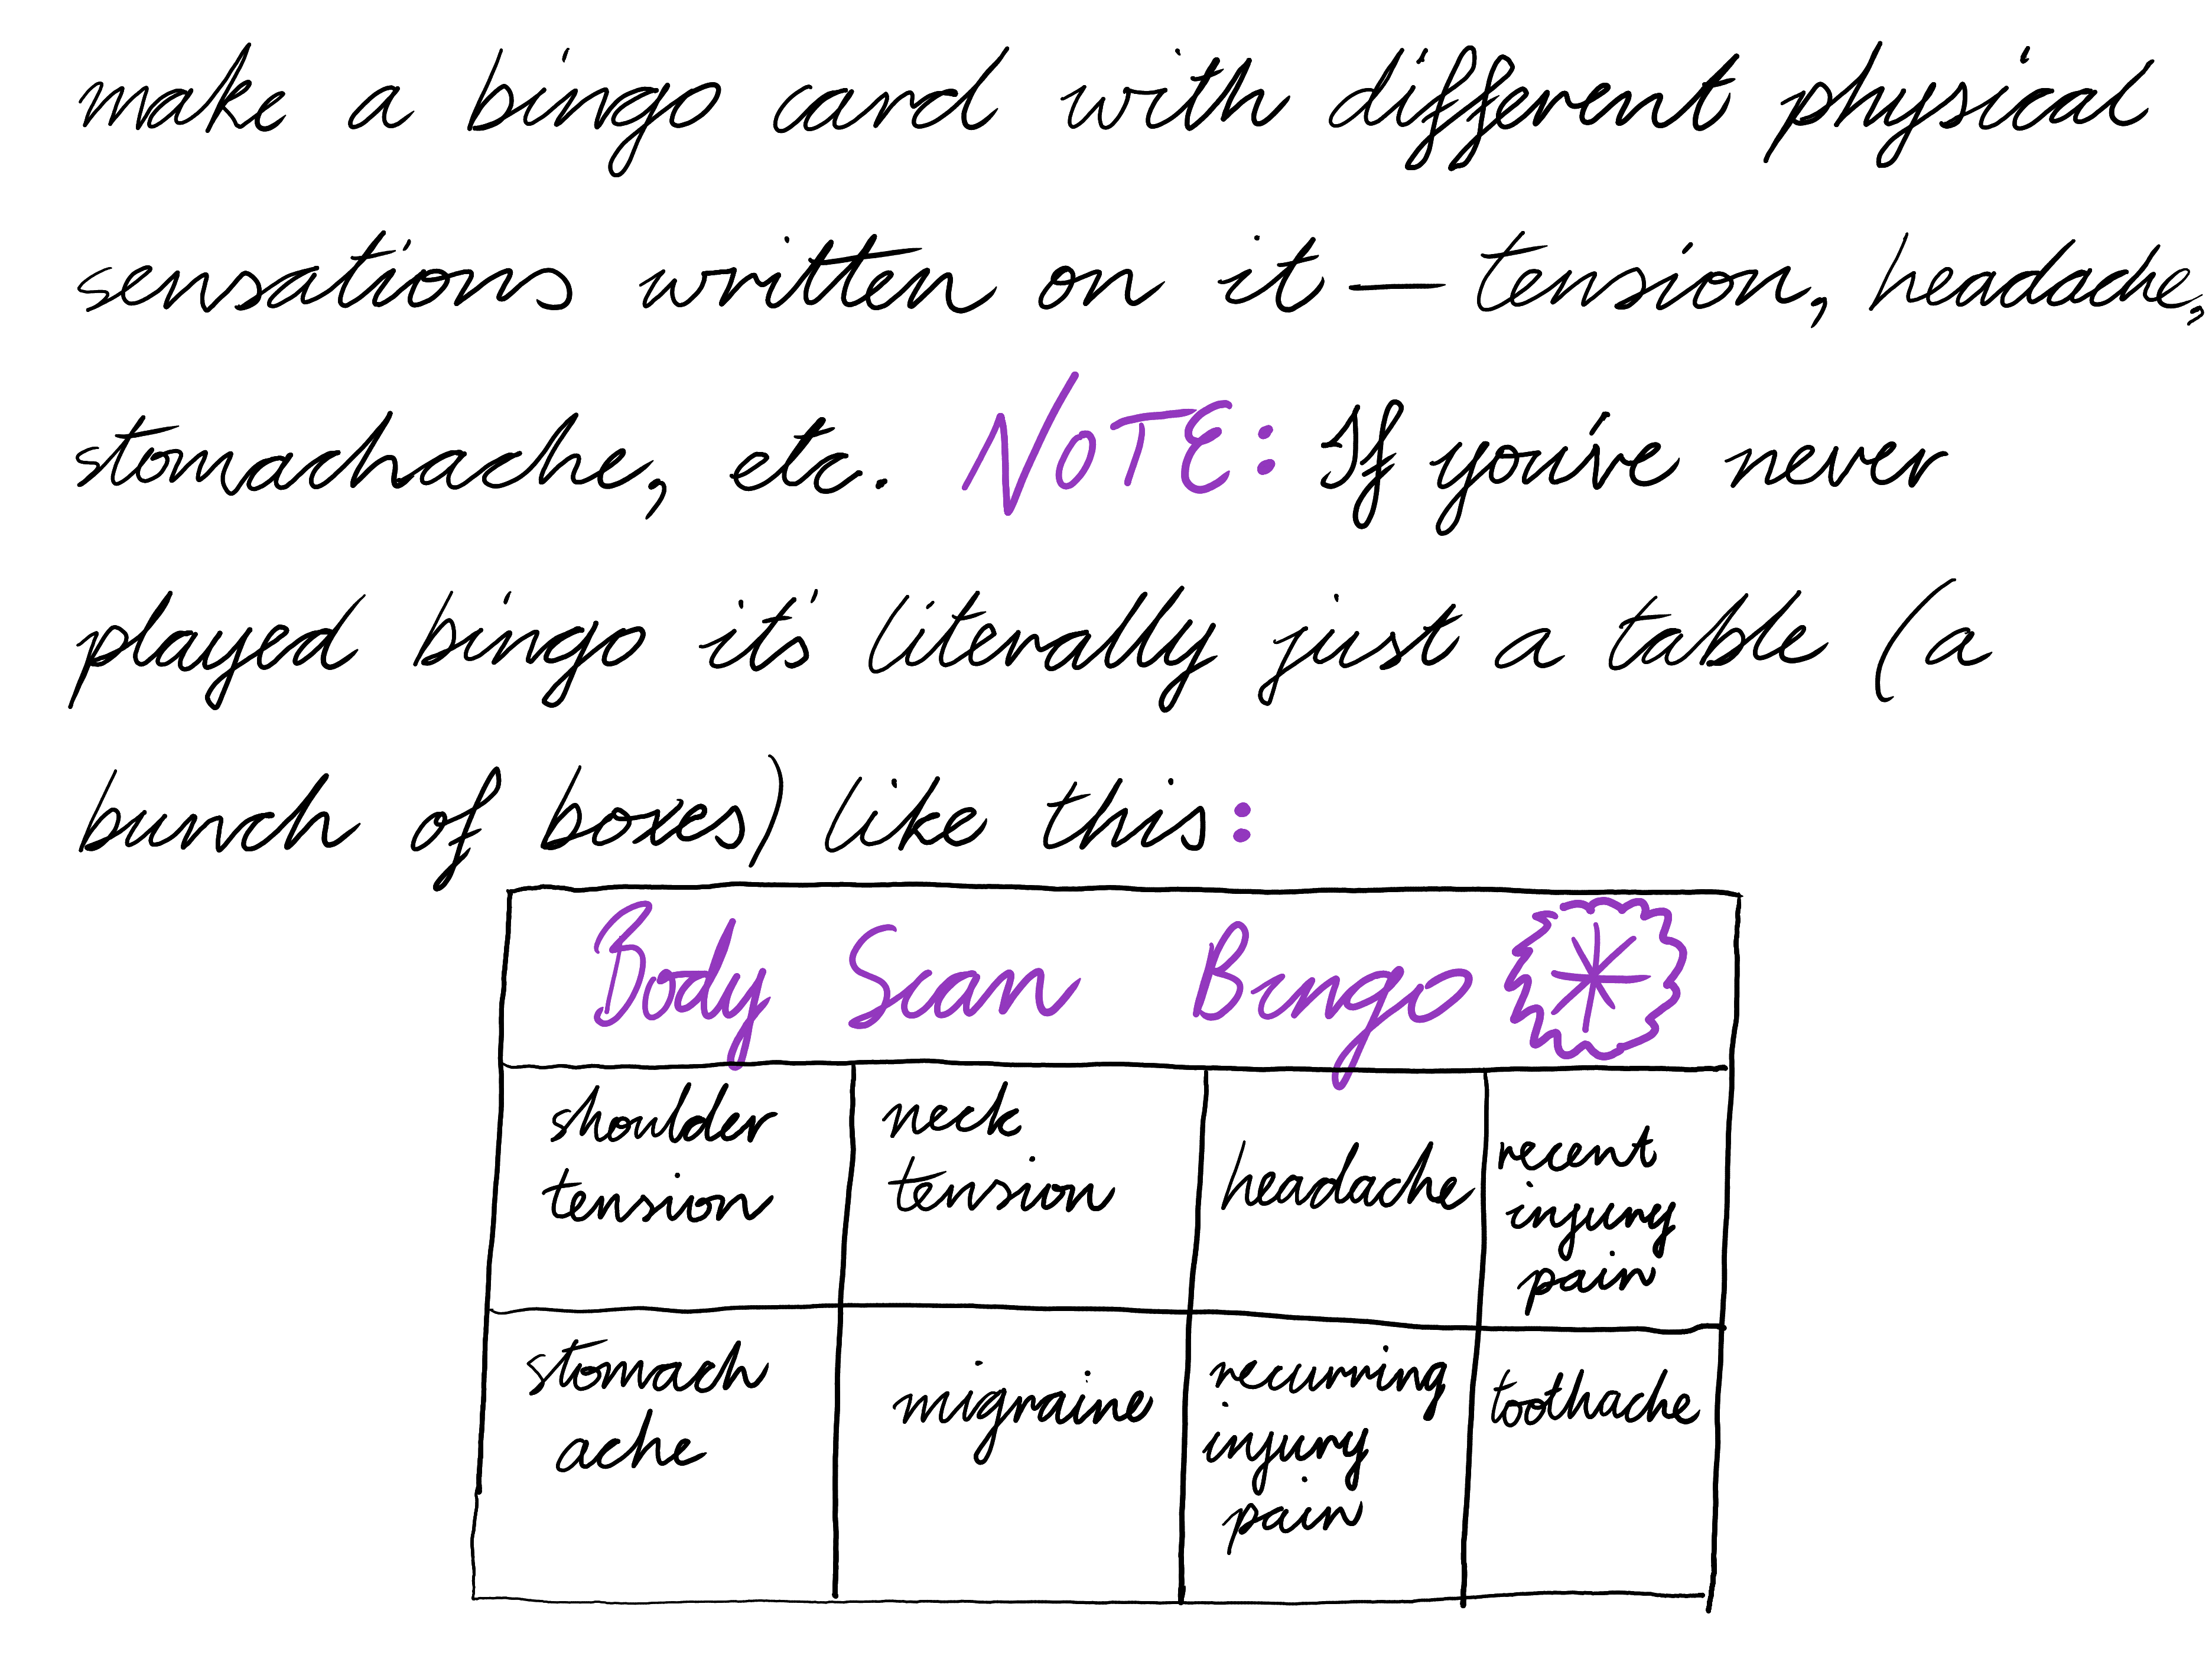 make a bingo card with different physical
sensations written on it — tension, headache,
stomachache, etc. NOTE: If you've never
played bingo it's literally just a table (a
bunch of boxes) like this:
Body Scan Bingo
shoulder
tension
neck
tension
headache
recent
injury
pain
stomach
ache
migraine
recurring
injury
pain
toothache